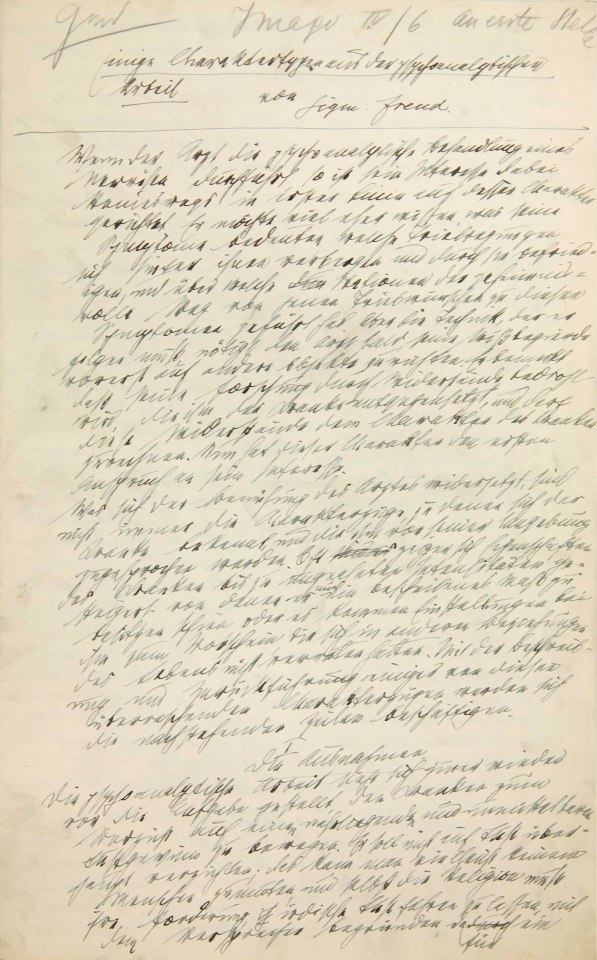 Imago IV/6 An erste Stelle
Einige Charaktertypen aus der psychoanalytischen
Arbeit
von
Sigm. Freud.
Wenn der Arzt die psychoanalytische Behandlung eines
Nervösen durchführt, so ist sein Interesse dabei
keineswegs in erster Linie auf dessen Charakter
gerichtet. Er möchte viel eher wissen, was seine
Symptome bedeuten, welche Triebregungen
sich hinter ihnen verbergen und durch sie befried-
igen, und über welche Stationen der geheimnis-
volle Weg von jenen Triebwünschen zu diesen
Symptomen geführt hat. Aber die Technik, der er
folgen muß, nötigt den Arzt bald, seine Wißbegierde
vorerst auf andere Objekte zu richten. Er bemerkt,
daß seine Forschung durch Widerstände bedroht
wird, die ihm der Kranke entgegensetzt, und darf
diese Widerstände dem Charakter des Kranken
zurechnen. Nun hat dieser Charakter den ersten
Anspruch an sein Interesse.
Was sich der Bemühung des Arztes widersetzt, sind
nicht immer die Charakterzüge, zu denen sich der
Kranke bekennt und die ihm von seiner Umgebung
zugesprochen werden. Oft zeigen sich Eigenschaften
des Kranken bis zu ungeahnten Intensitäten ge-
steigert, von denen er nur ein bescheidenes Maß zu
besitzen schien, oder es kommen Einstellungen bei
ihm zum Vorschein, die sich in anderen Beziehungen
des Lebens nicht verraten hatten. Mit der Beschreib-
ung und Zurückführung einiger von diesen
überraschenden Charakterzügen werden sich
die nachstehenden Zeilen beschäftigen.
I
Die Ausnahmen
Die psychoanalytische Arbeit sieht sich immer wieder
vor die Aufgabe gestellt, den Kranken zum
Verzicht auf einen naheliegenden und unmittelbaren
Lustgewinn zu bewegen. Er soll nicht auf Lust über-
haupt verzichten; das kann man vielleicht keinem
Menschen zumuten, und selbst die Religion muß
ihre Forderung, irdische Lust fahren zu lassen, mit
dem Versprechen begründen, dafür ein